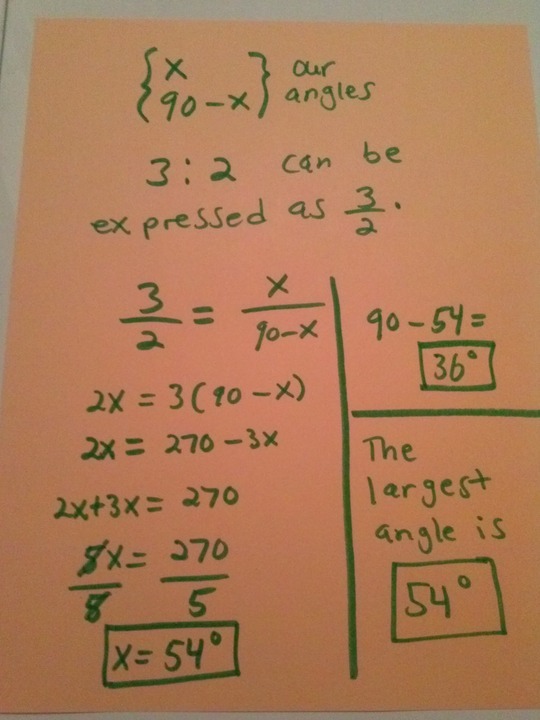 {x
90-x} our angles
3:2 can be
expressed as 3/2.
3/2 = x/90-x
2x = 3(90-x)
2x = 270-3x
2x+3x = 270
5x/5 = 270/5
x = 54°
90-54=
36°
The
largest
angle is
54°